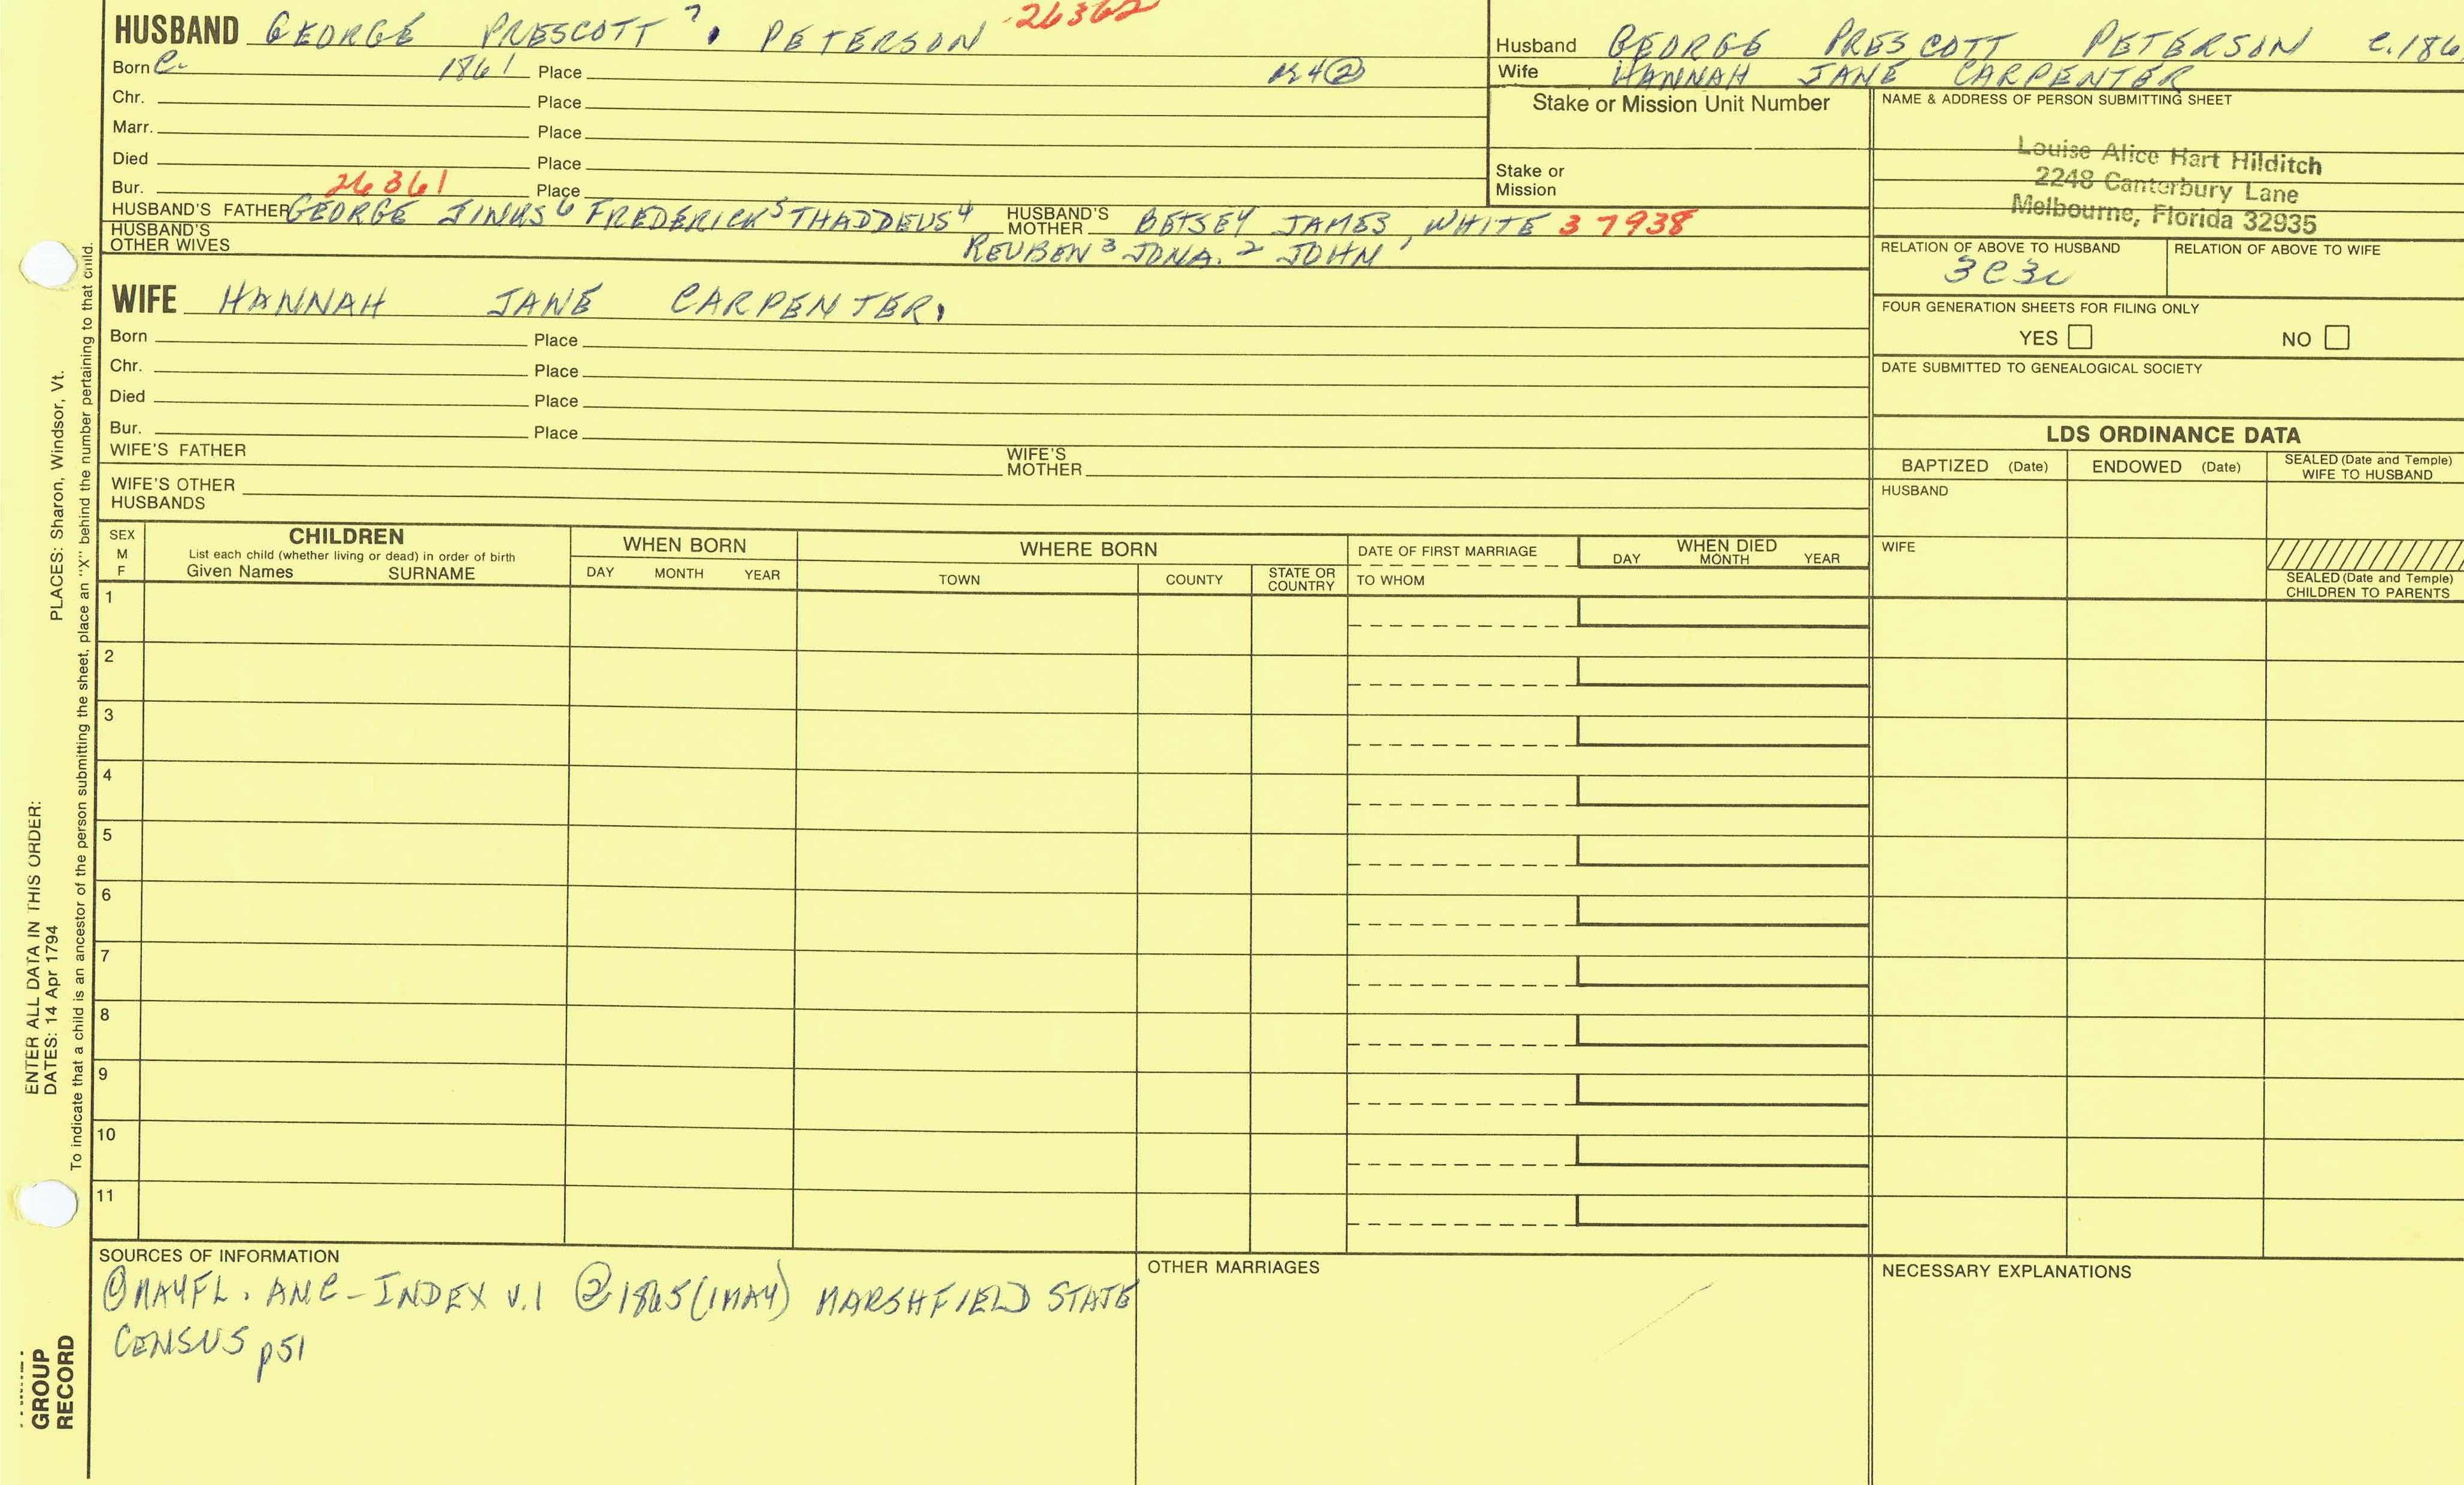 HUSBAND GEORGE PRESCOTT 7. PETERSON 26362
Born C. 1861 Place
Chr. Place
Marr. Place
Died Place
Bur. 26361 Place
HUSBAND'S FATHER GEORGE JINKS 6 FREDERICK 5 THADDEUS 4 HUSBAND'S MOTHER BETSEY JAMES, WHITE 37938
HUSBAND'S OTHER WIVES REUBEN 3 JONA. 2 JOHN 1
Husband GEORGE PRESCOTT PETERSON C.186
Wife HANNAH JANE CARPENTER
Stake or Mission Unit Number
Stake or
Mission
NAME & ADDRESS OF PERSON SUBMITTING SHEET
Louise Alice Hart Hilditch
2248 Canterbury Lane
Melbourne, Florida 32935
RELATION OF ABOVE TO HUSBAND RELATION OF ABOVE TO WIFE
3C3R
FOUR GENERATION SHEETS FOR FILING ONLY
YES NO
DATE SUBMITTED TO GENEALOGICAL SOCIETY
WIFE HANNAH JANE CARPENTER.
Born Place
Chr. Place
Died Place
Bur. Place
WIFE'S FATHER WIFE'S MOTHER
WIFE'S OTHER
HUSBANDS
LDS ORDINANCE DATA
BAPTIZED (Date) ENDOWED (Date) SEALED (Date and Temple) WIFE TO HUSBAND
HUSBAND
WIFE
SEALED (Date and Temple)
CHILDREN TO PARENTS
SEX M F
CHILDREN
List each child (whether living or dead) in order of birth
Given Names SURNAME
WHEN BORN
DAY MONTH YEAR
WHERE BORN
TOWN COUNTY STATE OR COUNTRY
DATE OF FIRST MARRIAGE
TO WHOM
WHEN DIED
DAY MONTH YEAR
1
2
3
4
5
6
7
8
9
10
11
SOURCES OF INFORMATION
① MAYFL. ANC-INDEX V.1 ② 1865 (1MAY) MARSHFIELD STATE
CENSUS p51
OTHER MARRIAGES
NECESSARY EXPLANATIONS
ENTER ALL DATA IN THIS ORDER:
DATES: 14 Apr 1794 PLACES: Sharon, Windsor, Vt.
To indicate that a child is an ancestor of the person submitting the sheet, place an "X" behind the number pertaining to that child.
GROUP
RECORD